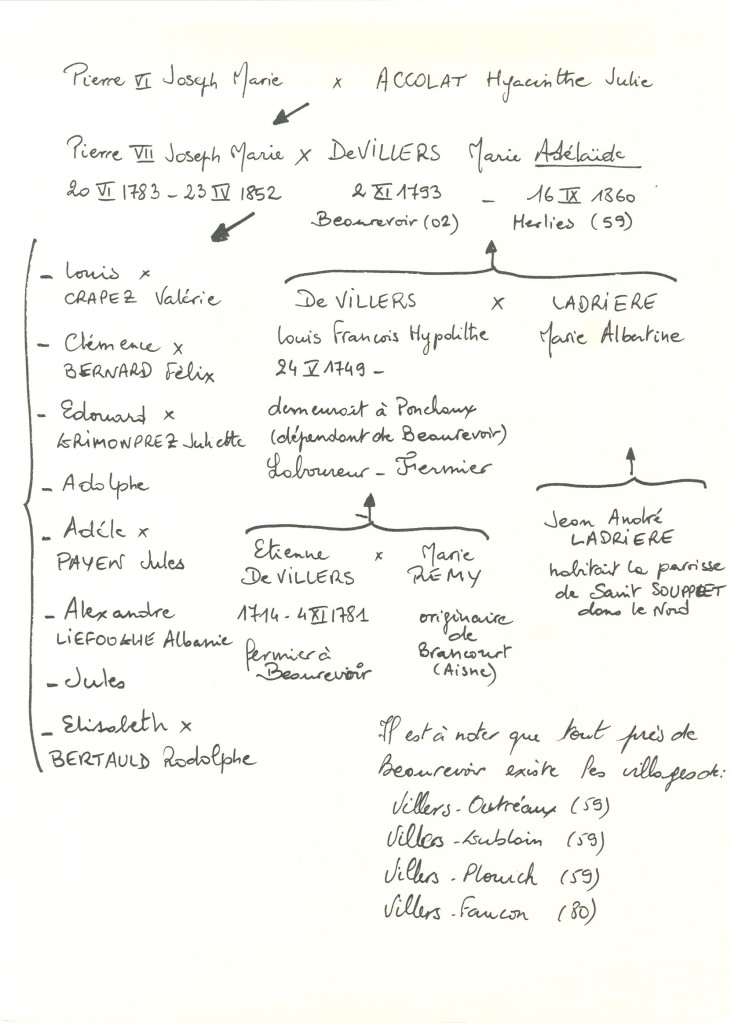 Pierre VI Joseph Marie x ACCOLAT Hyacinthe Julie
Pierre VII Joseph Marie x DeVILLERS Marie Adélaïde
20 VI 1783 - 23 IV 1852 2 XI 1793 - 16 IX 1860
Beaurevoir (02) Herlies (59)
- Louis x
CRAPEZ Valérie
- Clémence x
BERNARD Félix
- Edouard x
GRIMONPREZ Juliette
- Adolphe
- Adéle x
PAYEN Jules
- Alexandre
LIEFOOGHE Albanie
- Jules
- Elisabeth x
BERTAULD Rodolphe
De VILLERS x LADRIERE
Louis Francois Hypolithe Marie Albertine
24 V 1749 -
demeurait à Ponchaux
(dépendant de Beaurevoir)
Laboureur - Fermier
Etienne x Marie
De VILLERS REMY
1714 - 4 XI 1781 originaire
de
fermier à Brancourt
Beaurevoir (Aisne)
Jean André
LADRIERE
habitait la paroisse
de Saint SOUPPLET
dans le Nord
Il est à noter que tout près de
Beaurevoir existe les villages de:
Villers-Outréaux (59)
Villers-Gublain (59)
Villers-Plouich (59)
Villers-Faucon (80)